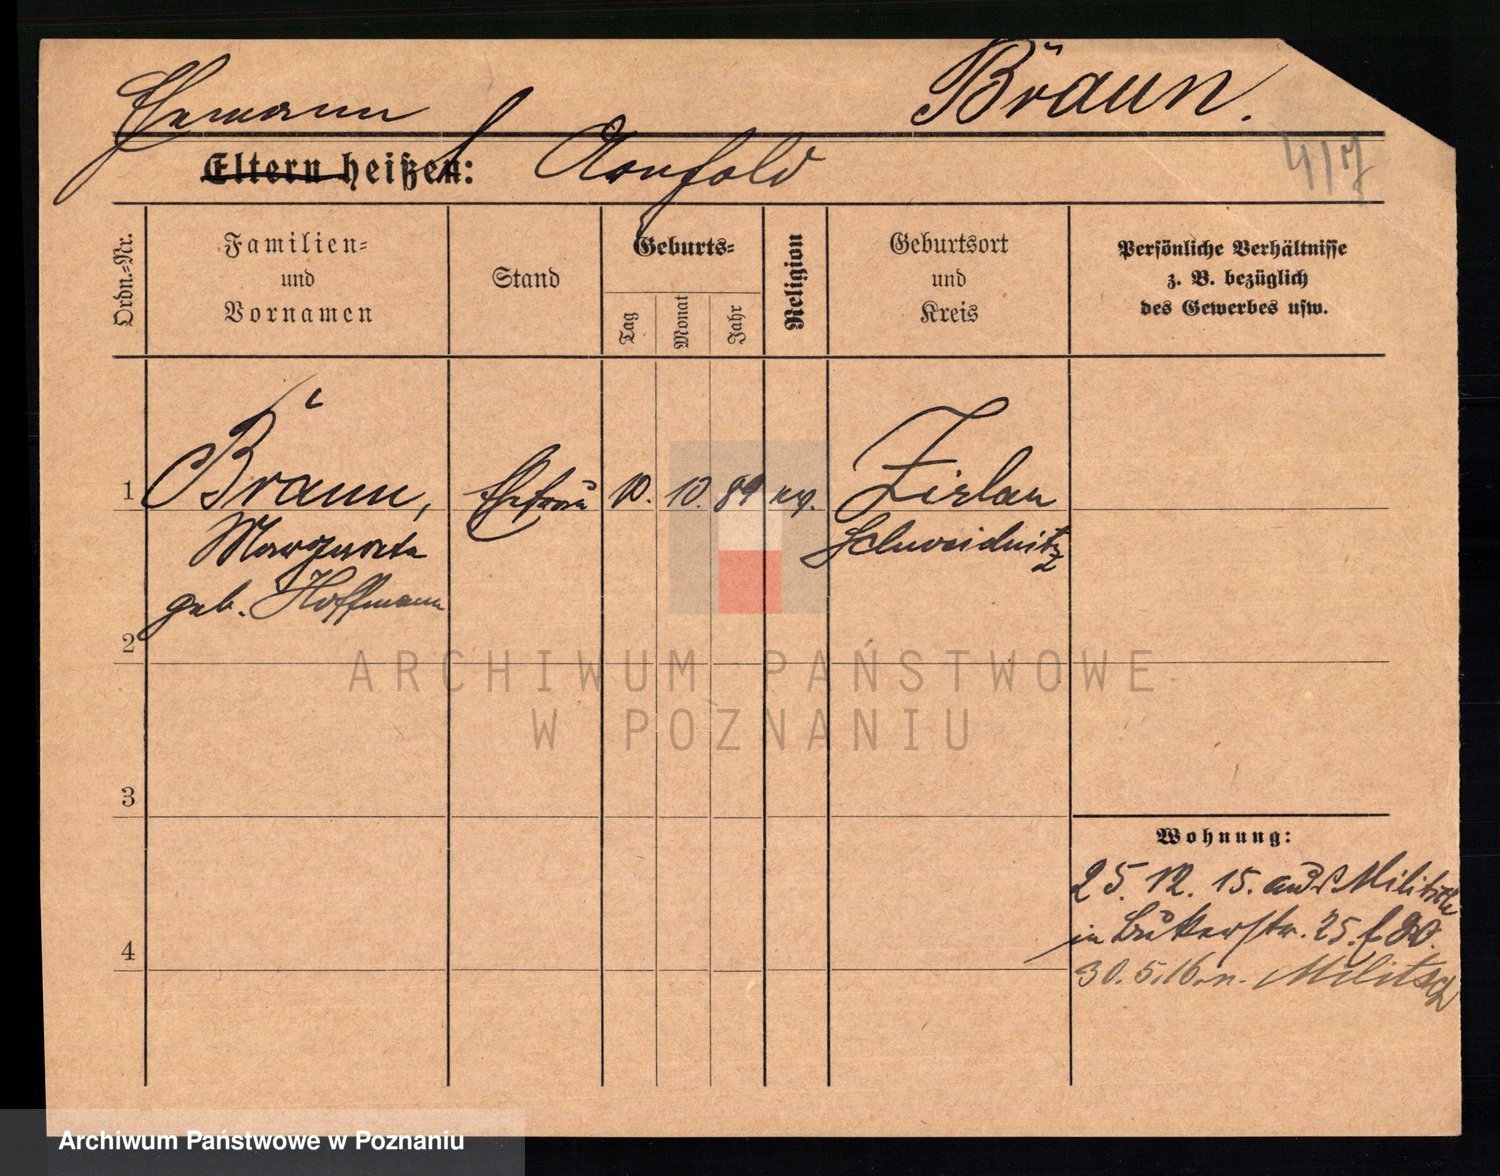 Ehemann
Braun.
Eltern heißen:
417
Ordn.=Nr.
Familien=
und
Vornamen
Stand
Geburts=
Tag
Monat
Jahr
Religion
Geburtsort
und
Kreis
Persönliche Verhältnisse
z. B. bezüglich
des Gewerbes usw.
1
Braun,
Ehefrau
10.
10.
89
ev.
Zirlau
Margarete
Schweidnitz
geb. Hoffmann
2
ARCHIWUM PAŃSTWOWE
W POZNANIU
3
Wohnung:
25. 12. 15. aus Militsch
in Bukerstr. 25.
4
30. 5. 16. n. Militsch
Archiwum Państwowe w Poznaniu